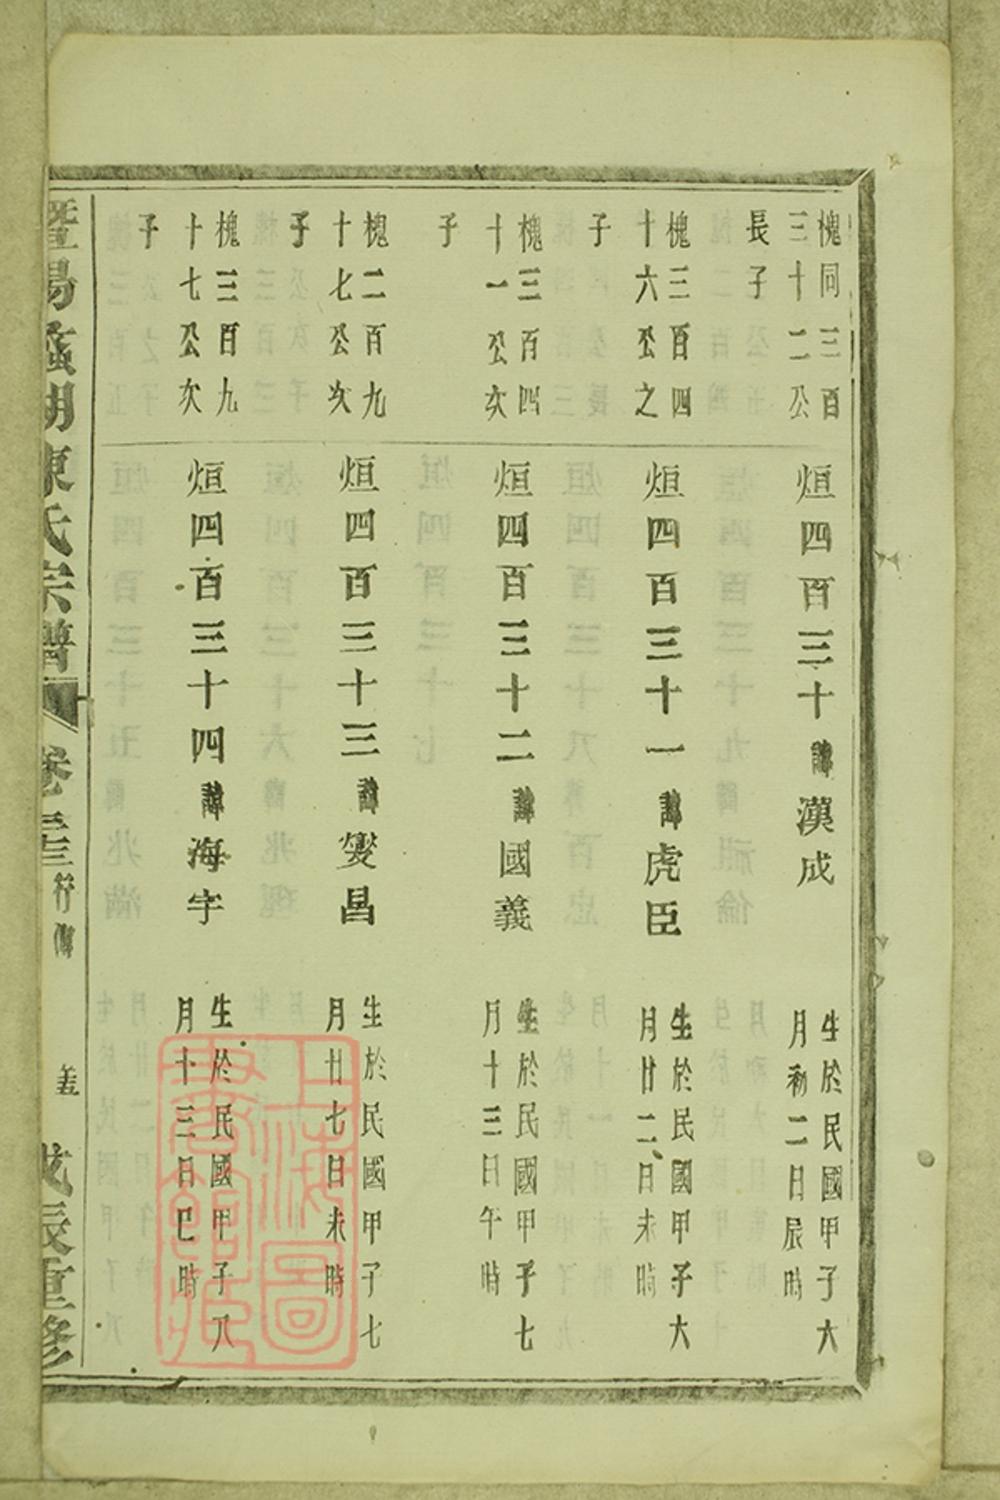 槐同三百
三十二公
長子
烜四百三十諱漢成
生於民國甲子六
月初二日辰時
槐三百四
十六公之
子
烜四百三十一諱虎臣
生於民國甲子六
月廿二日未時
槐三百四
十一公次
子
烜四百三十二諱國義
生於民國甲子七
月十三日午時
槐二百九
十七公次
子
烜四百三十三諱燮昌
生於民國甲子七
月廿七日未時
槐三百九
十七公次
子
烜四百三十四諱海宇
生於民國甲子八
月十三日巳時
暨陽 湖陳氏宗譜 卷 行傳 戊辰重修
上海圖書館藏